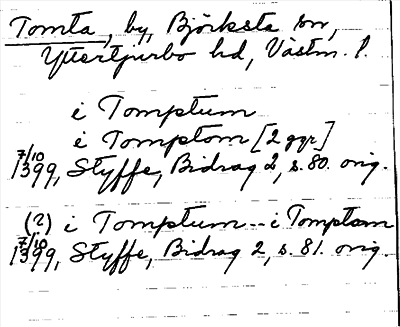 Tomta, by, Björksta sn,
Yttertjurbo hd, Västm. l.
i Tomptum
i Tomptom [2 ggr]
7/10 1399, Styffe, Bidrag 2, s. 80. orig.
(?) i Tomptum - i Tomptom
7/10 1399, Styffe, Bidrag 2, s. 81. orig.